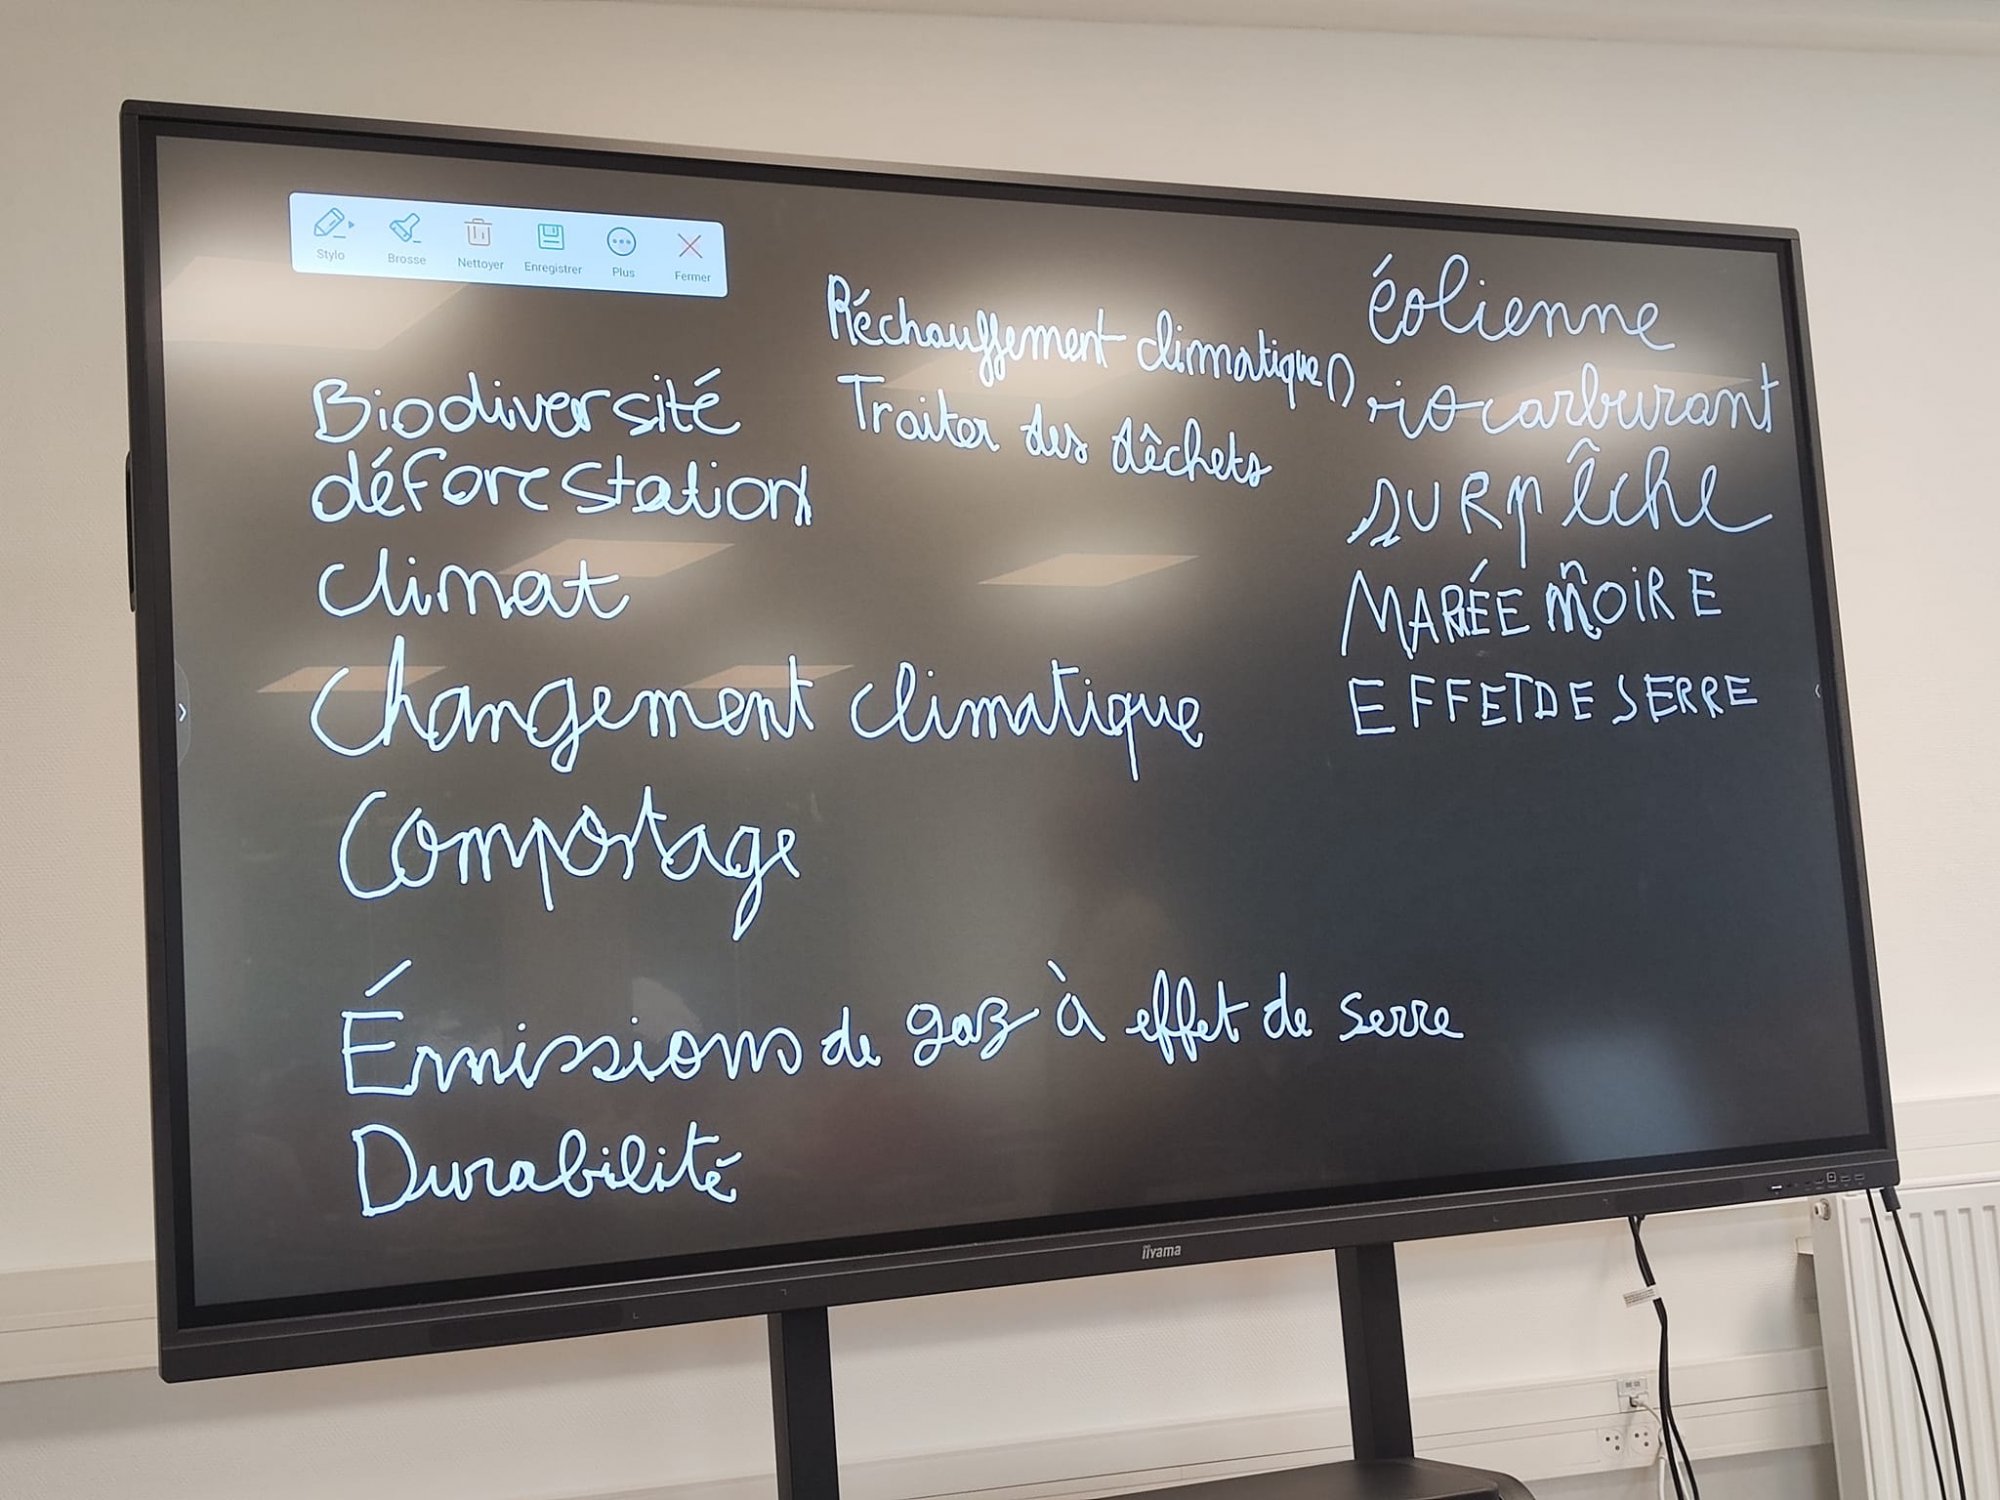 Stylo Brosse Nettoyer Enregistrer Plus Fermer
Biodiversité
déforestation
climat
Changement climatique
Compostage
Émissions de gaz à effet de serre
Durabilité
Réchauffement climatique
Traiter des dêchets
éolienne
surpêche
MARÉE nOIRE
EFFET DE SERRE
iiyama